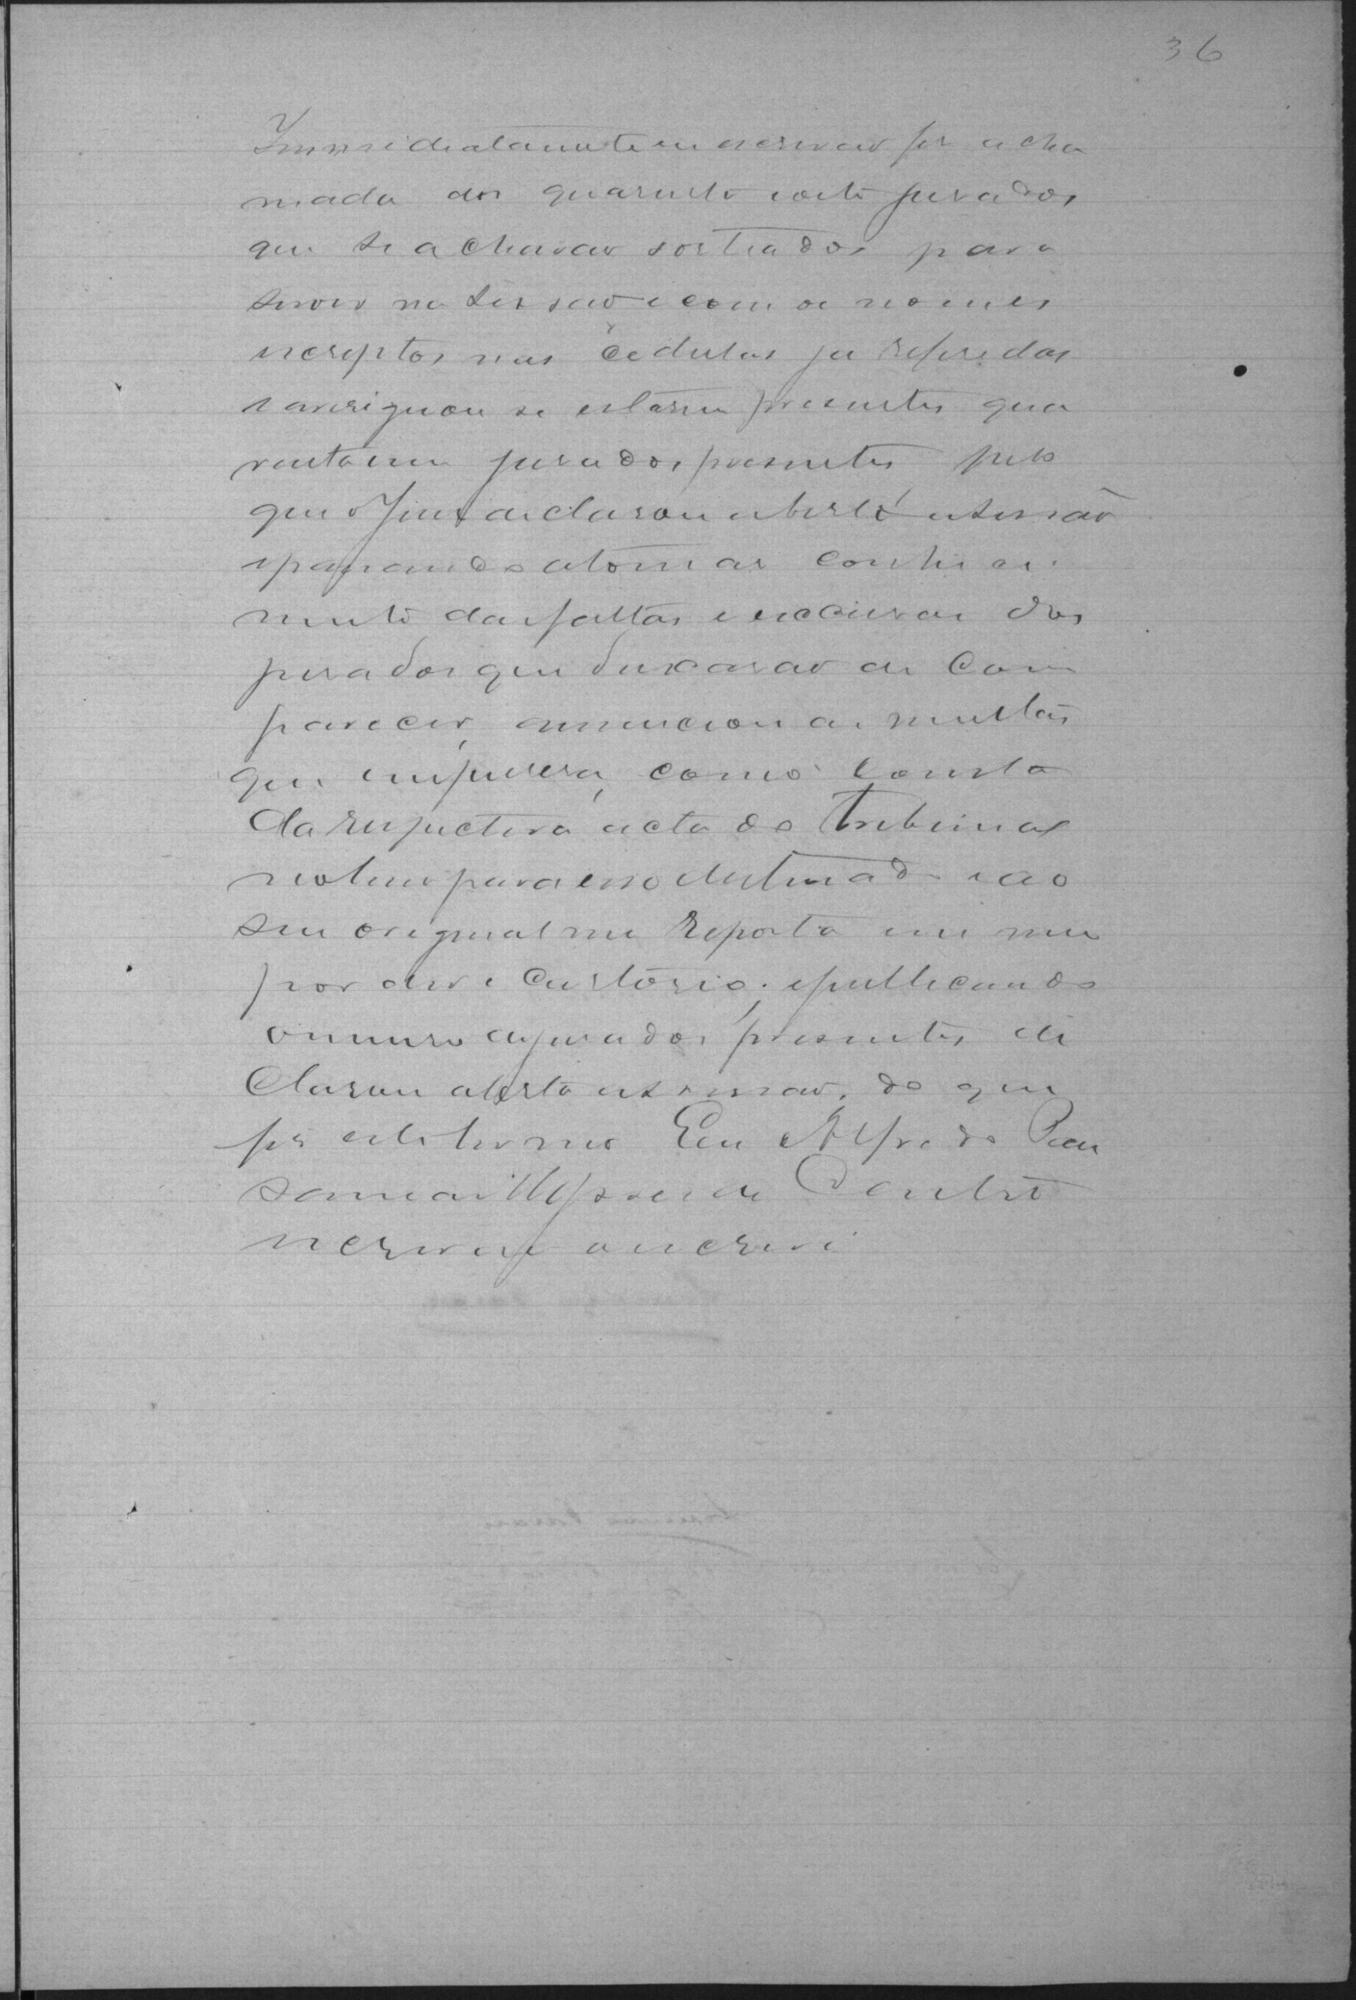 36
Immediatamente o escrivão fez a cha
mada dos quarenta e oito jurados
que se achavão sorteados para
servir na sessão e com os nomes
escriptos nas cedulas ja referidas
e averiguou se estarem presentes qua
renta e um jurados presentes pelo
que o Juiz declarou aberta a sessão
e passando a tomar conheci
mento das faltas e escusas dos
jurados que deixarão de com
parecer, annunciou as multas
que impusera, como consta
da respectiva acta do Tribunal
no livro para esso destinado e ao
seu original me reporto em meu
poder e cartorio; e publicando
o numero de jurados presentes de
clarou aberta a sessão, do que
fiz este termo Eu Alfredo
de Castro
escrivão o escrevi